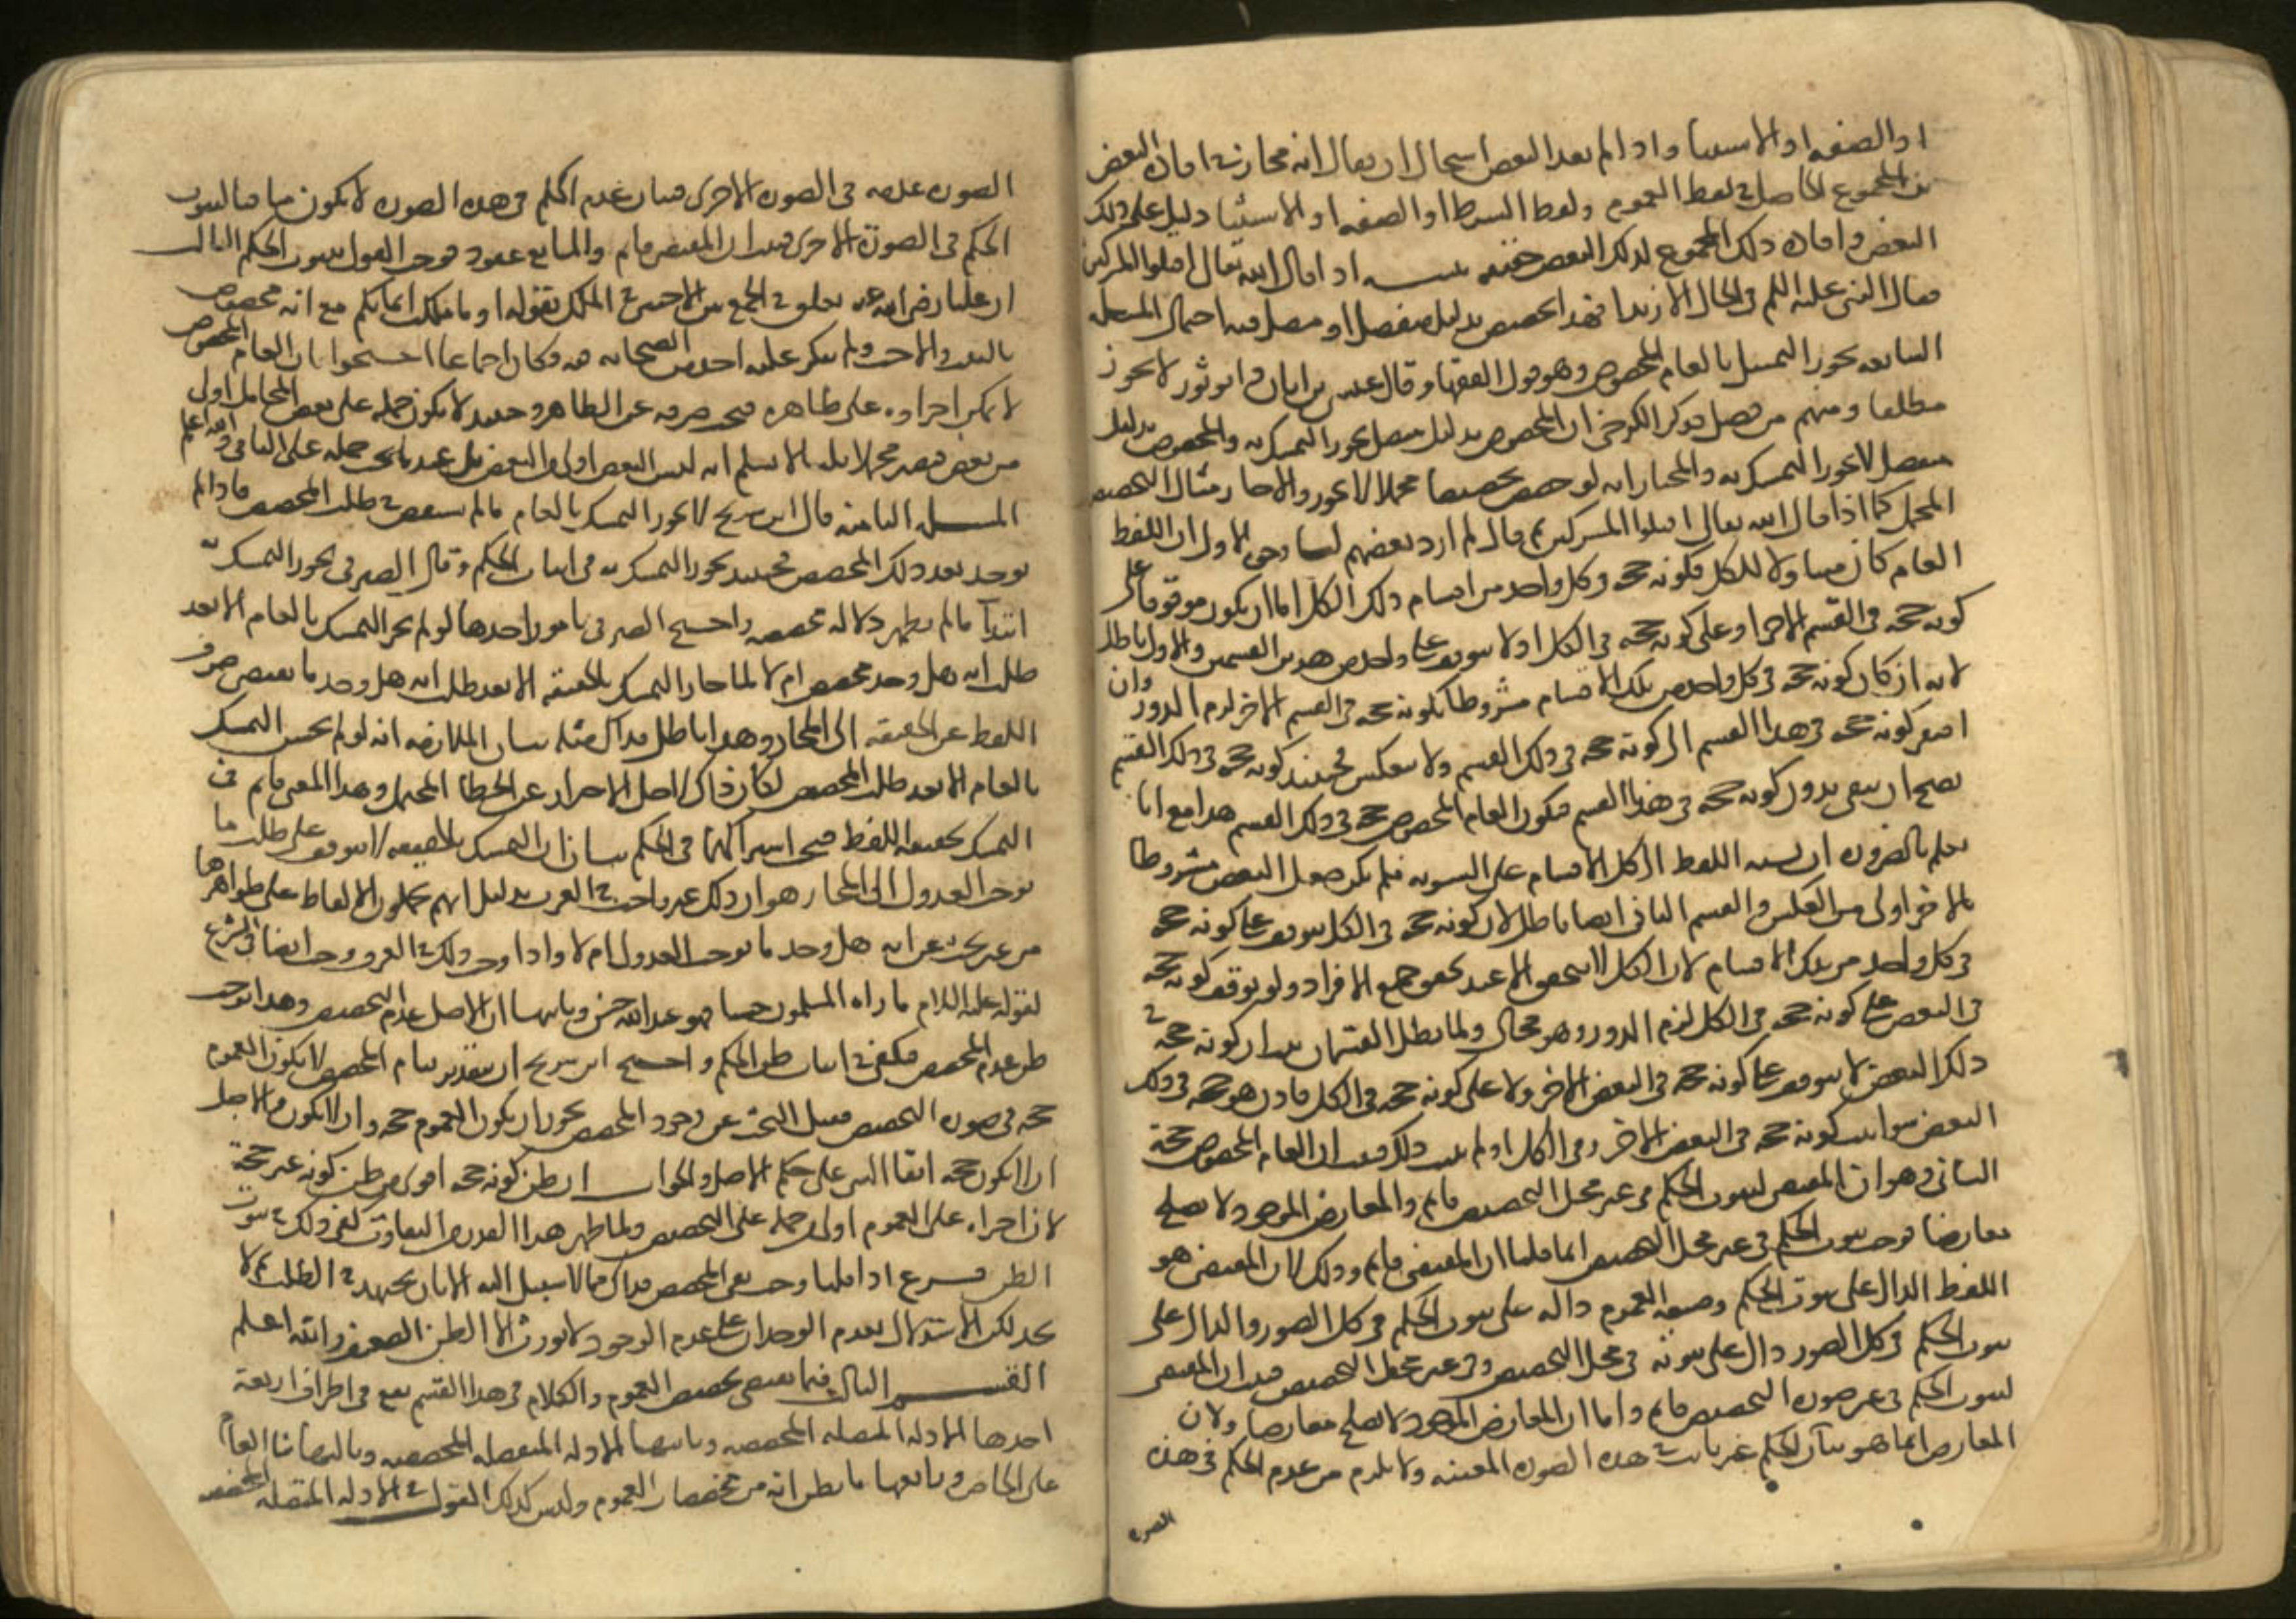 او الصفه او الاستثنا واذا لم يفد البعض استحال ان يقال انه مجاز في افادة البعض
المجموع الحاصل في لفظ العموم ولفظ الشرط او الصفه او الاستثنا دليل على ذلك
البعض وافادة ذلك المجموع لذلك البعض حقيقه اذا قال الله تعالى اقتلوا المشركين
فقال النبي عليه السلم في الحال الا زيدا فهذا تخصيص بدليل منفصل او متصل فيه احتمال المسئله
السابعه يجوز التمسك بالعام المخصوص وهو قول الفقها وقال عيسى بن ابان وابو ثور لا يجوز
مطلقا ومنهم من فصل فذكر الكرخي ان المخصوص بدليل متصل يجوز التمسك به والمخصوص بدليل
منفصل لا يجوز التمسك به والمختار انه لو خص تخصيصا مجملا لا يجوز والا جاز مثال التخصيص
المجمل كما اذا قال الله تعالى اقتلوا المشركين ثم قال لم ارد بعضهم لنا وجهان الاول ان اللفظ
العام كان متناولا للكل فكونه حجه في كل واحد من اقسام ذلك الكل اما ان يكون موقوفا على
كونه حجه في القسم الاخر او على كونه حجه في الكل او لا يتوقف على واحد من هذين القسمين والاول باطل
لانه ان كان كونه حجه في كل واحد من تلك الاقسام مشروطا بكونه حجه في القسم الاخر لزم الدور وان
افتقر كونه حجه في هذا القسم الى كونه حجه في ذلك القسم ولا ينعكس فحينئذ كونه حجه في ذلك القسم
يصح ان يبقى بدون كونه حجه في هذا القسم فيكون العام المخصوص حجه في ذلك القسم هذا مع انا
نعلم بالضروره ان نسبه اللفظ الى كل الاقسام على السويه فلم يكن جعل البعض مشروطا
بالاخر اولى من العكس والقسم الثاني ايضا باطل لان كونه حجه في الكل يتوقف على كونه حجه
في كل واحد من تلك الاقسام لان الكل لا يتحقق الا عند تحقق جميع الافراد ولو توقف كونه حجه
في البعض على كونه حجه في الكل لزم الدور وهو محال ولما بطل القسمان ثبت ان كونه حجه في
ذلك البعض لا يتوقف على كونه حجه في البعض الاخر ولا على كونه حجه في الكل فاذن هو حجه في ذلك
البعض سوا ثبت كونه حجه في البعض الاخر وفي الكل او لم يثبت ذلك فثبت ان العام المخصوص حجة
الثاني وهو ان المقتضى لثبوت الحكم في غير محل التخصيص قايم والمعارض الموجود لا يصلح
معارضا فوجب ثبوت الحكم في غير محل التخصيص انما قلنا ان المقتضى قايم وذلك لان المقتضى هو
اللفظ الدال على ثبوت الحكم وصيغه العموم داله على ثبوت الحكم في كل الصور والدال على
ثبوت الحكم في كل الصور دال على ثبوته في محل التخصيص وفي غير محل التخصيص فثبت ان المقتضى
لثبوت الحكم في غير صوره التخصيص قايم واما ان المعارض الموجود لا يصلح معارضا ولان
المعارض انما هو بيان ان الحكم غير ثابت في هذه الصوره المعينه ولا يلزم من عدم الحكم في هذه
الصوره
الصوره عدمه في الصوره الاخرى فبيان عدم الحكم في هذه الصوره لا يكون منافيا لثبوت
الحكم في الصورة الاخرى فثبت ان المقتضى قايم والمانع مفقود فوجب القول بثبوت الحكم الثالث
ان عليا رضي الله عنه تعلق في الجمع بين الاختين في الملك بقوله او ما ملكت ايمانكم مع انه مخصوص
بالبنت والاخت ولم ينكر عليه احد من الصحابه فكان اجماعا احتجوا بان العام المخصوص
لا يمكن اجراوه على ظاهره فيجب صرفه عن الظاهر وحينئذ لا يكون حمله على بعض المحامل اولى
من بعض فيصير مجملا قلنا لا نسلم انه ليس البعض اولى من البعض بل عندنا يجب حمله على الباقي والله اعلم
المسله الثامنه قال ابن سريج لا يجوز التمسك بالعام ما لم يستقص في طلب المخصص فاذا لم
يوجد بعد ذلك المخصص فحينئذ يجوز التمسك به في اثبات الحكم وقال الصيرفي يجوز التمسك به
ابتدآ ما لم يظهر دلاله مخصصه واحتج الصيرفي بامور احدها لو لم يجز التمسك بالعام الا بعد
طلب انه هل وجد مخصص ام لا لما جاز التمسك بالحقيقه الا بعد طلب انه هل وجد ما يقتضي صرف
اللفظ عن الحقيقه الى المجاز وهذا باطل فذاك مثله بيان الملازمه انه لو لم يحسن التمسك
بالعام الا بعد طلب المخصص لكان ذاك لاجل الاحتراز عن الخطا المحتمل وهذا المعنى قايم في
التمسك بحقيقه اللفظ فيجب اشتراكهما في الحكم بيان ان التمسك بالحقيقه لا يتوقف على طلب ما
يوجب العدول الى المجاز هو ان ذلك غير واجب في العرف بدليل انهم يحملون الالفاظ على ظواهرها
من غير بحث عن انه هل وجد ما يوجب العدول ام لا واذا وجب ذلك في العرف وجب ايضا في الشرع
لقوله عليه السلام ما راه المسلمون حسنا فهو عند الله حسن وثانيها ان الاصل عدم التخصيص وهذا يوجب
ظن عدم المخصص فيكفي في اثبات ظن الحكم واحتج ابن سريج ان بتقدير قيام المخصص لا يكون العموم
حجه في صوره التخصيص فقبل البحث عن وجود المخصص يجوز ان يكون العموم حجه وان لا يكون والاصل
ان لا يكون حجه ابقا للشي على حكم الاصل والجواب ان ظن كونه حجه اقوى من ظن كونه غير حجة
لان اجراه على العموم اولى من حمله على التخصيص ولما ظهر هذا القدر من التفاوت كفى ذلك في ثبوت
الظن فرع اذا قلنا يجب نفي المخصص فذاك مما لا سبيل اليه الا بان يجتهد في الطلب ثم لا
يجد لكن الاستدلال بعدم الوجدان على عدم الوجود لا يورث الا الظن الضعيف والله اعلم
القسم الثالث فيما يقتضي تخصيص العموم والكلام في هذا القسم يقع في اطراف اربعة
احدها الادله المتصله المخصصه وثانيها الادله المنفصله المخصصه وثالثها بنا العام
على الخاص ورابعها ما يظن انه من مخصصات العموم وليس كذلك القول في الادله المتصله المخصصه